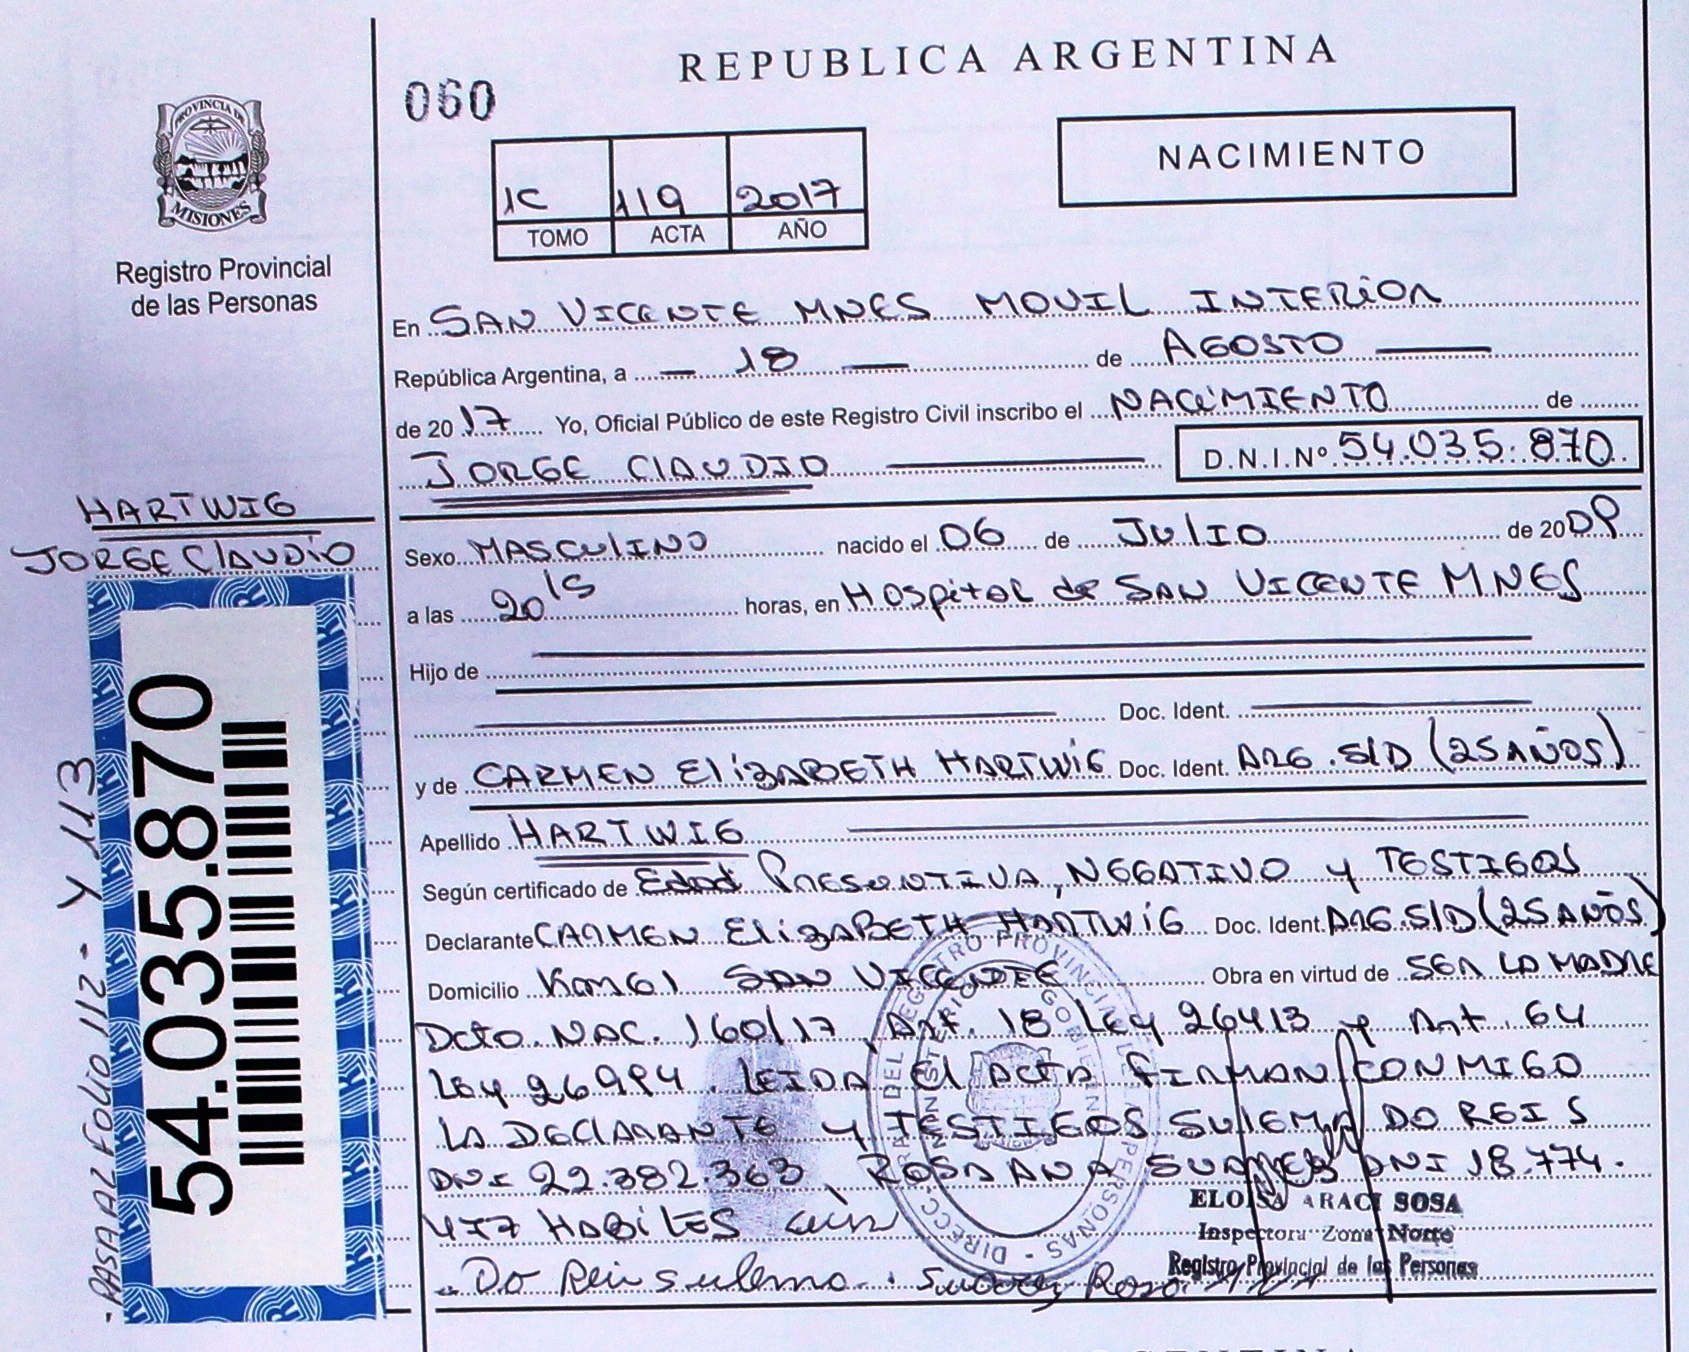 REPUBLICA ARGENTINA
060
PROVINCIA DE
MISIONES
Registro Provincial
de las Personas
1C 119 2017
TOMO ACTA AÑO
NACIMIENTO
En SAN VICENTE MNES MOVIL INTERIOR
República Argentina, a 18 de AGOSTO
de 2017 Yo, Oficial Público de este Registro Civil inscribo el NACIMIENTO de
JORGE CLAUDIO D.N.I.Nº 54.035.870
HARTWIG
JORGE CLAUDIO
Sexo MASCULINO nacido el 06 de JULIO de 2009
a las 20 15 horas, en Hospital de SAN VICENTE MNES
Hijo de
Doc. Ident.
y de CARMEN ELIZABETH HARTWIG Doc. Ident. ARG. S/D (25 AÑOS)
Apellido HARTWIG
Según certificado de Edad PRESUNTIVA, NEGATIVO y TESTIGOS
Declarante CARMEN ELIZABETH HARTWIG Doc. Ident. ARG. S/D (25 AÑOS)
Domicilio SAN VICENTE Obra en virtud de SER LA MADRE
Dcto. NAC. 160/17, Art. 18 Ley 26413 y Art. 64
Ley 26994. LEIDA El ACTA FIRMAN CONMIGO
LA DECLARANTE y TESTIGOS SULEMA DO REIS
DNI 22.382.363, ROSA ANA SUAREZ DNI 18.774.
477 HABILES
Do Reis sulema. Suarez Rosa Ana
ELOISA ARACI SOSA
Inspectora Zona Norte
Registro Provincial de las Personas
54.035.870
- PASA A2 FOLIO 112 - Y 113